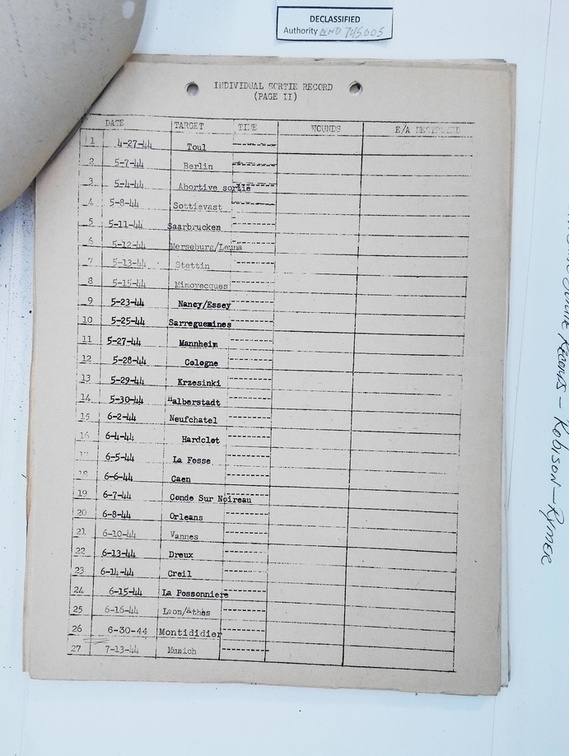 DECLASSIFIED
Authority NND 745005
INDIVIDUAL SORTIE RECORD
(PAGE II)
DATE TARGET TIME WOUNDS E/A DESTROYED
1 4-27-44 Toul
2 5-7-44 Berlin
3 5-4-44 Abortive sortie
4 5-8-44 Sottievast
5 5-11-44 Saarbrucken
6 5-12-44 Merseburg/Leuna
7 5-13-44 Stettin
8 5-15-44 Mimoyecques
9 5-23-44 Nancy/Essey
10 5-25-44 Sarreguemines
11 5-27-44 Mannheim
12 5-28-44 Cologne
13 5-29-44 Krzesinki
14 5-30-44 Halberstadt
15 6-2-44 Neufchatel
16 6-4-44 Hardelot
17 6-5-44 La Fosse
18 6-6-44 Caen
19 6-7-44 Conde Sur Noireau
20 6-8-44 Orleans
21 6-10-44 Vannes
22 6-13-44 Dreux
23 6-14-44 Creil
24 6-15-44 La Possonniere
25 6-16-44 Laon/Athes
26 6-30-44 Montididier
27 7-13-44 Munich
Records - Robison - Rymer